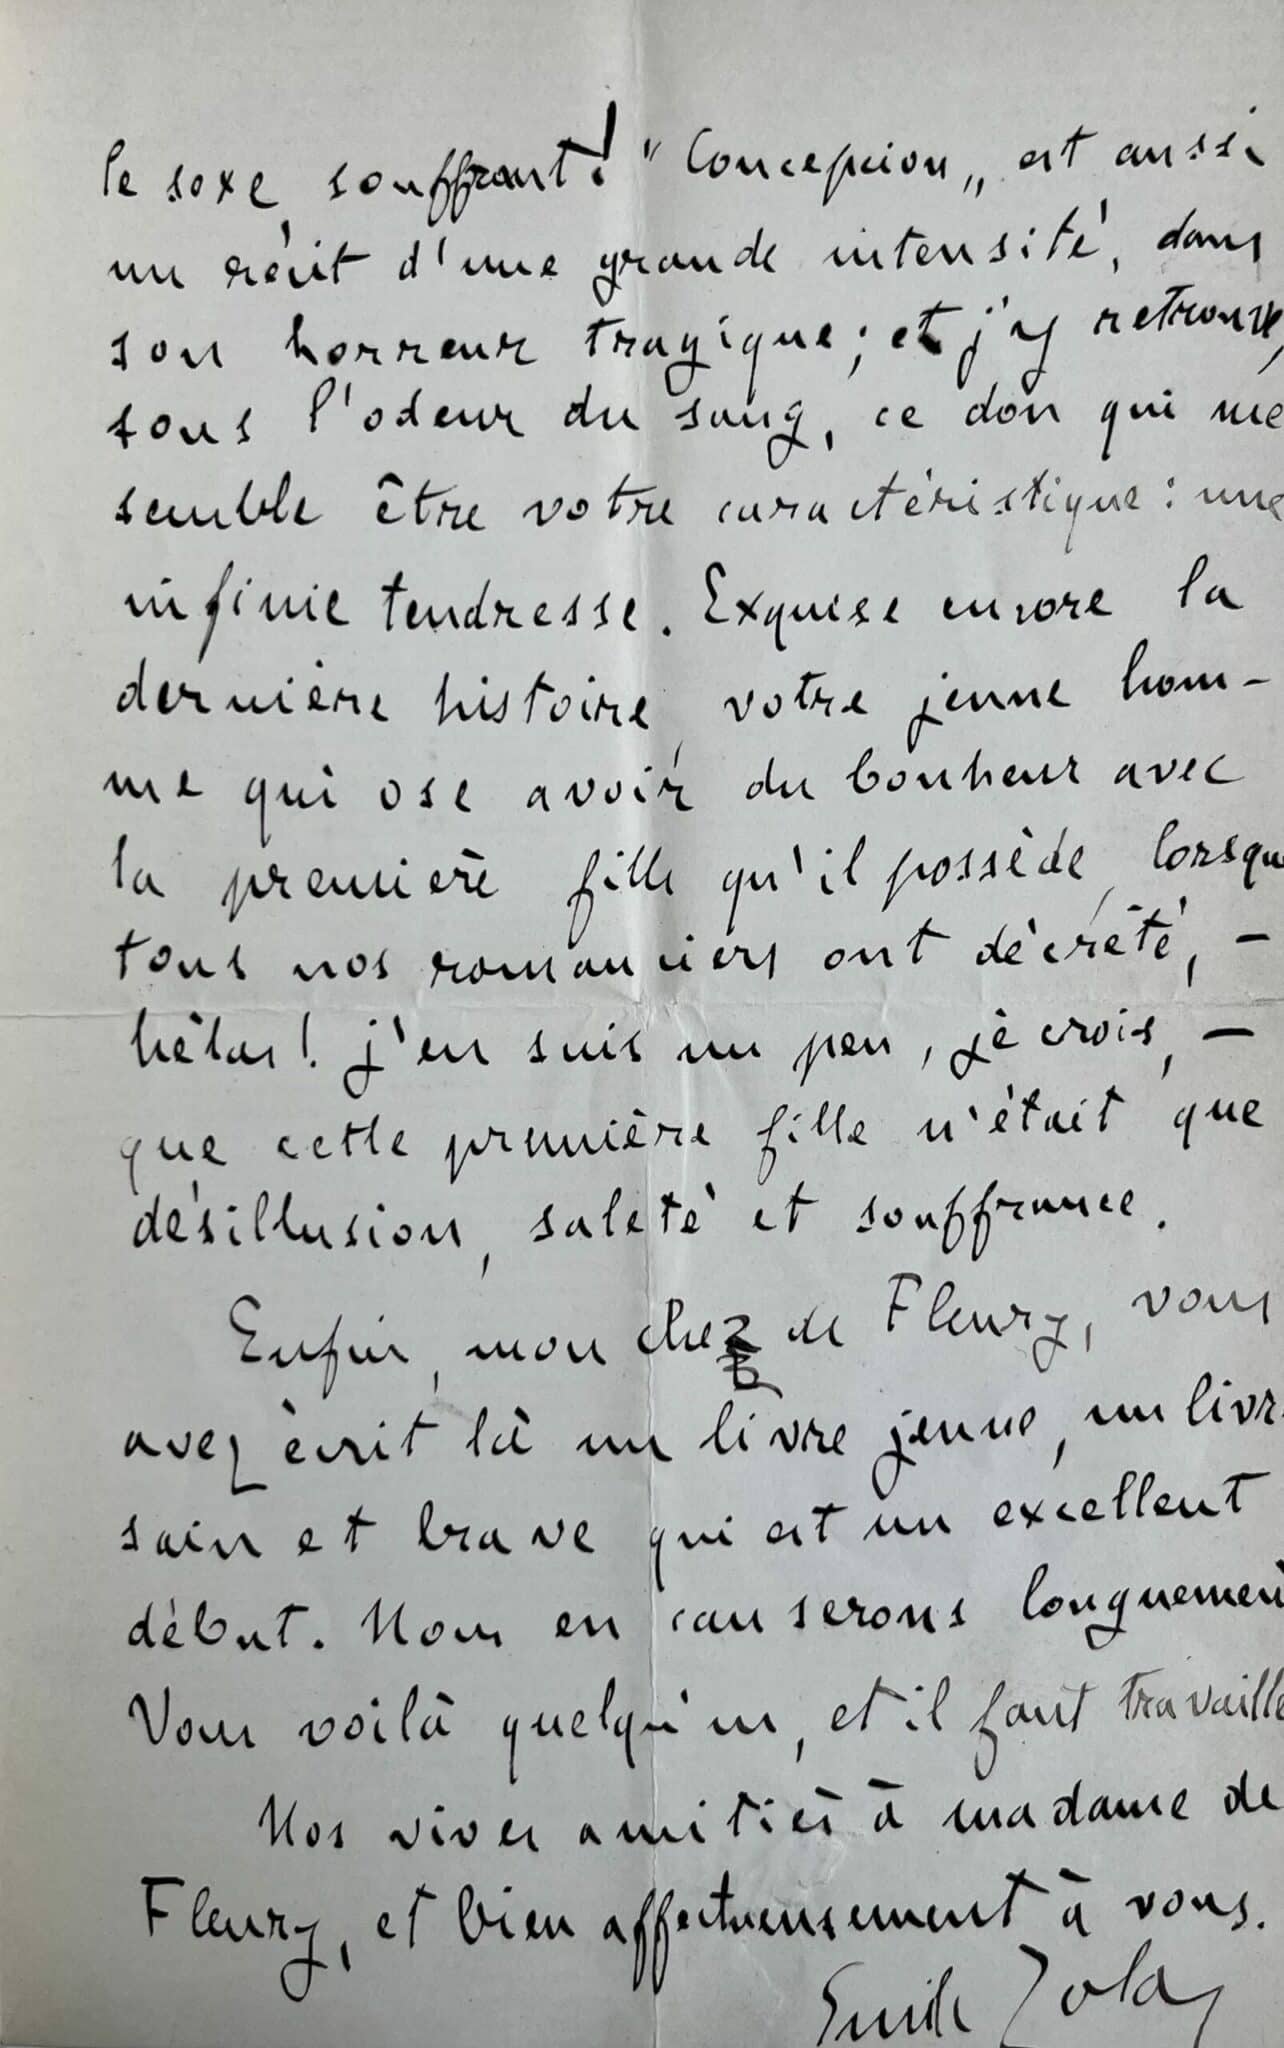 le sexe, souffrant! "Concepcion" est aussi
un récit d'une grande intensité, dans
son horreur tragique; et j'y retrouve,
sous l'odeur du sang, ce don qui me
semble être votre caractéristique: une
infinie tendresse. Exquise encore la
dernière histoire, votre jeune hom-
me qui ose avoir du bonheur avec
la première fille qu'il possède, lorsque
tous nos romanciers ont décrété, —
hélas! j'en suis un peu, je crois, —
que cette première fille n'était que
désillusion, saleté et souffrance.
Enfin, mon cher de Fleury, vous
avez écrit là un livre jeune, un livre
sain et brave qui est un excellent
début. Nous en causerons longuement
Vous voilà quelqu'un, et il faut travaille
Nos vives amitiés à madame de
Fleury, et bien affectueusement à vous.
Emile Zola